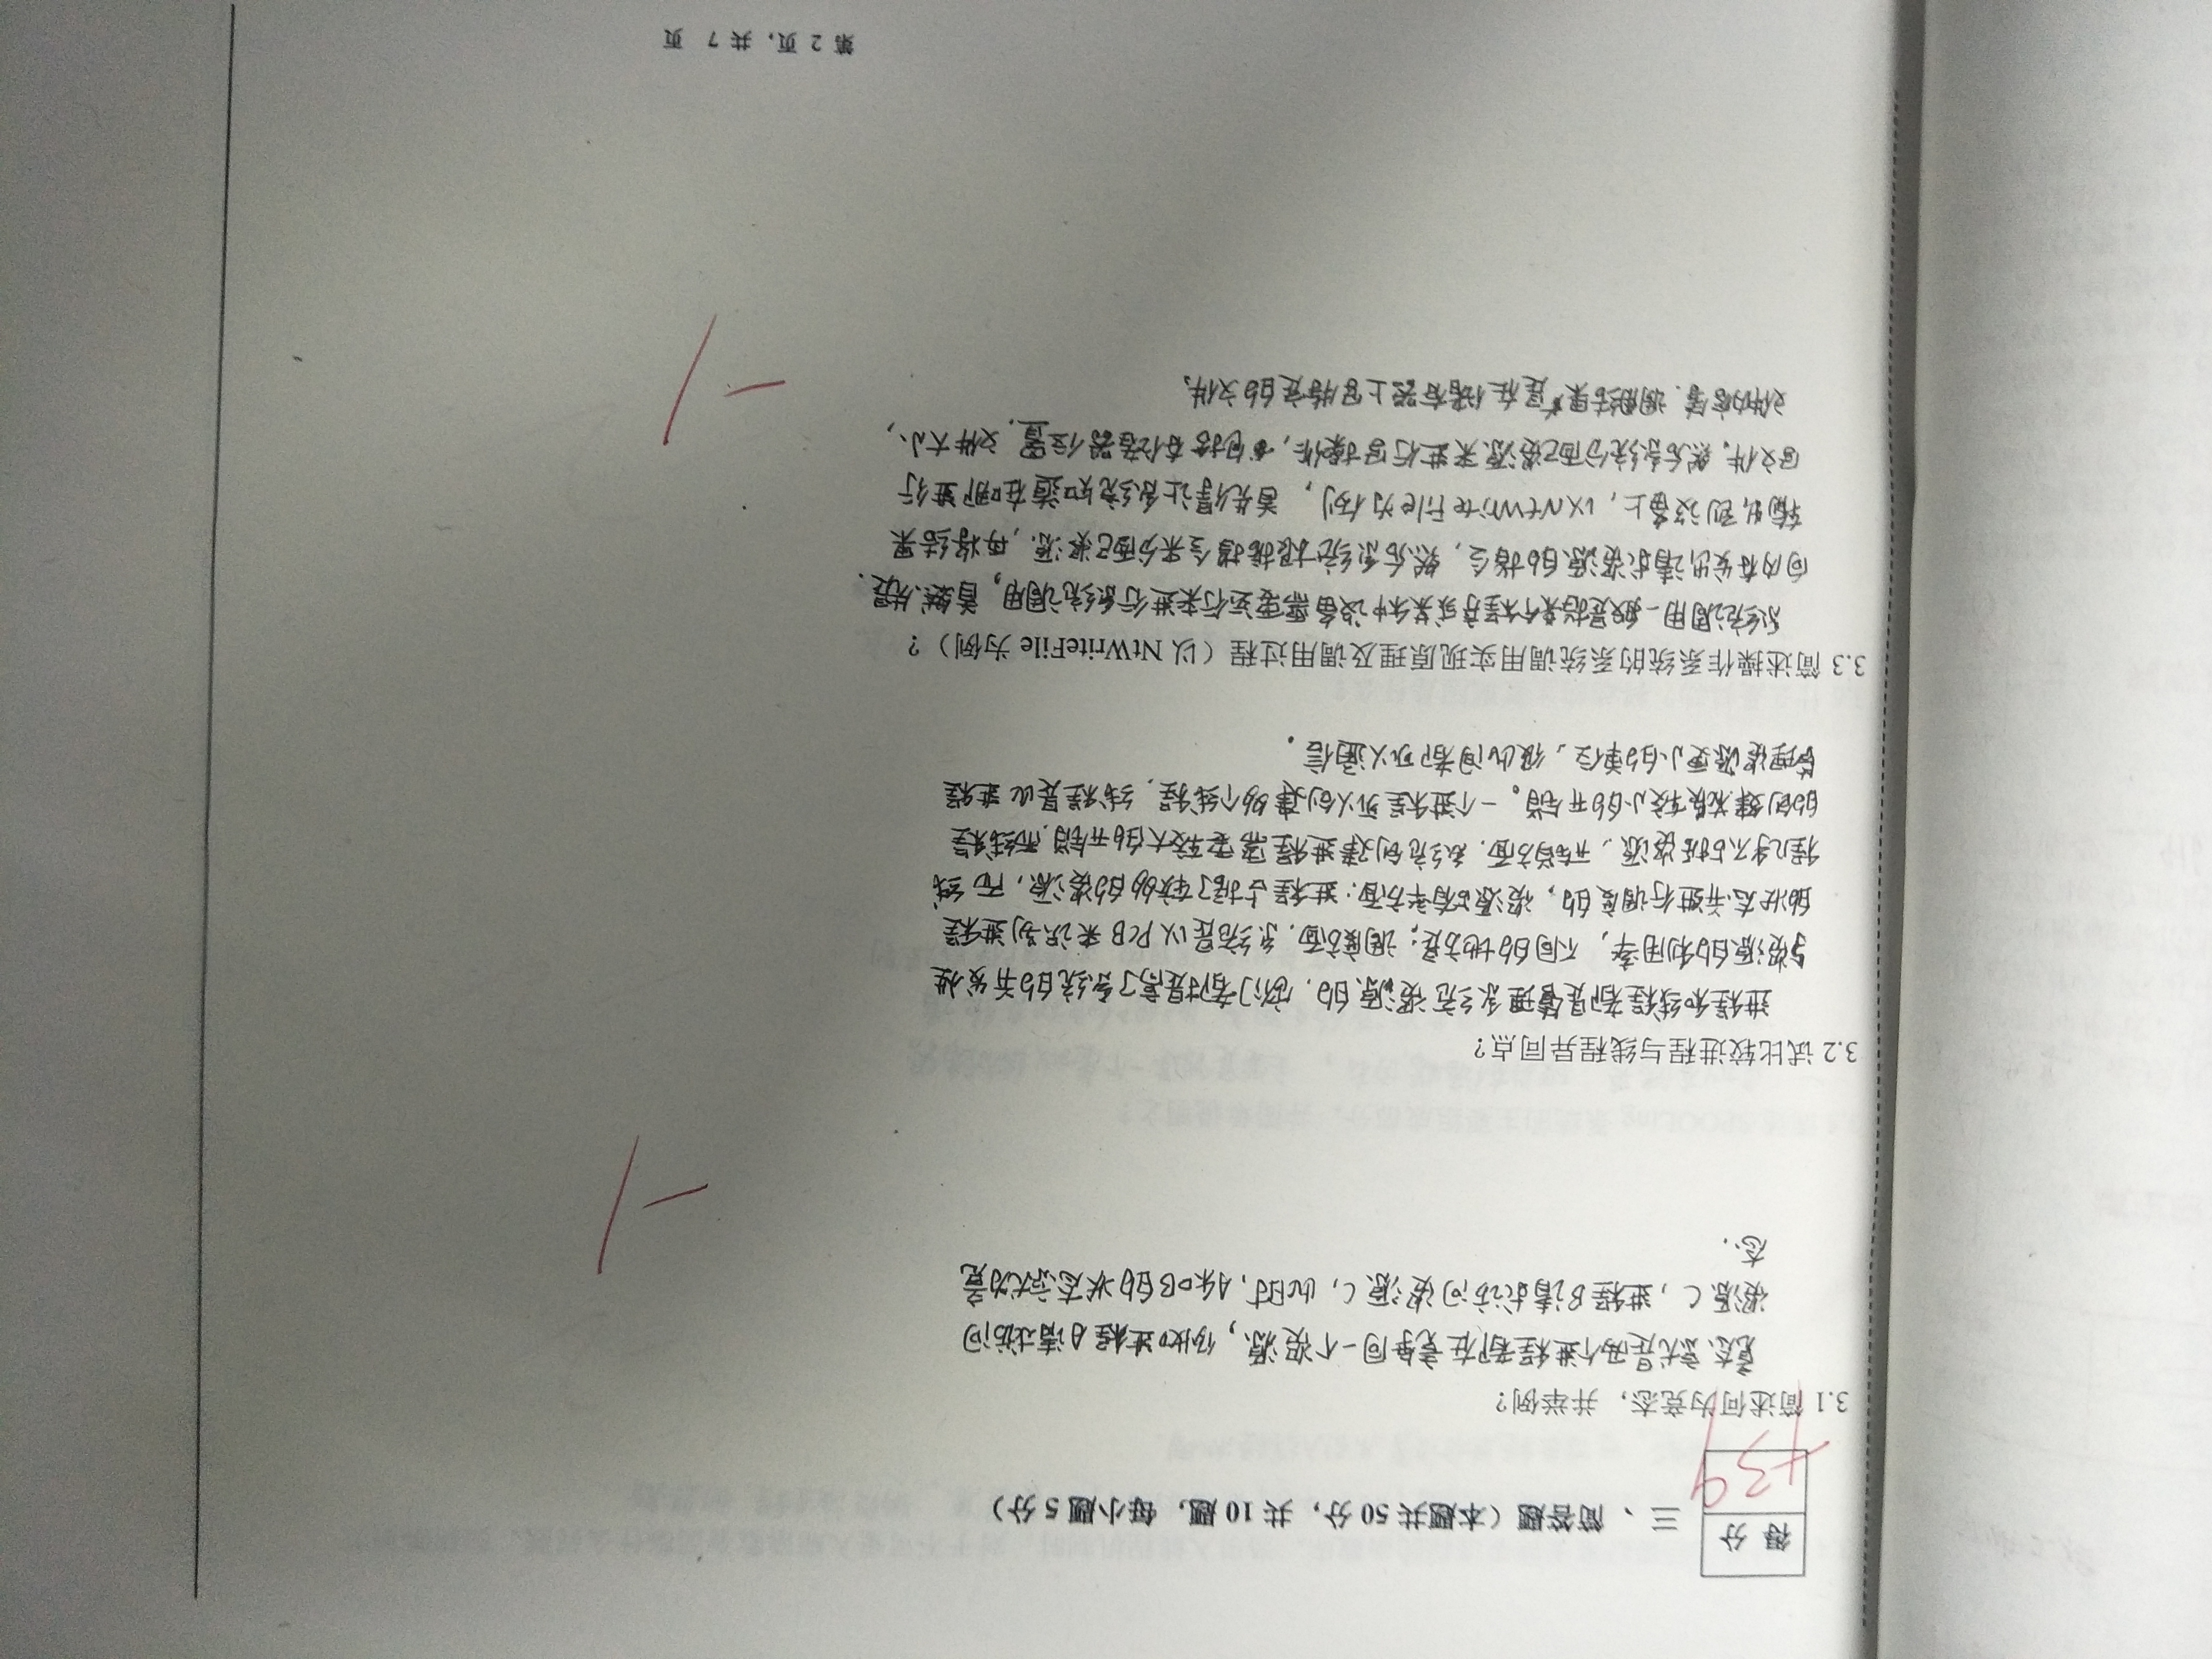 得 分
+39
三、简答题（本题共 50 分，共 10 题，每小题 5 分）
3.1 简述何为竞态，并举例？
竟态就是两个进程都在竞争同一个资源，例如进程A请求访问
资源C，进程B请求访问资源C，此时，A和B的状态就为竟
态.
-1
3.2 试比较进程与线程异同点？
进程和线程都是管理系统资源的，它们都提高了系统的并发性
与资源的利用率，不同的地方是：调度方面，系统是以PCB来识别进程
的状态并进行调度的，资源占有率方面：进程占据了较多的资源，而线
程几乎不占据资源，开销方面，系统创建进程需要较大的开销，而线程
的创建花费较小的开销。一个进程可以创建多个线程，线程是比进程
管理资源更小的单位，彼此间都可以通信.
3.3 简述操作系统的系统调用实现原理及调用过程（以 NtWriteFile 为例）？
系统调用一般是指某个程序或某种设备需要运行来进行系统调用，首先是
向内存发出请求资源的指令，然后系统根据指令来分配资源，再将结果
输出到设备上，以NtWriteFile为例，首先得让系统知道在哪进行
写文件，然后系统分配资源来进行写操作，包括存储器位置，文件大小，
文件内容等，调用结果是在储存器上写特定的文件。
-1
第 2 页，共 7 页